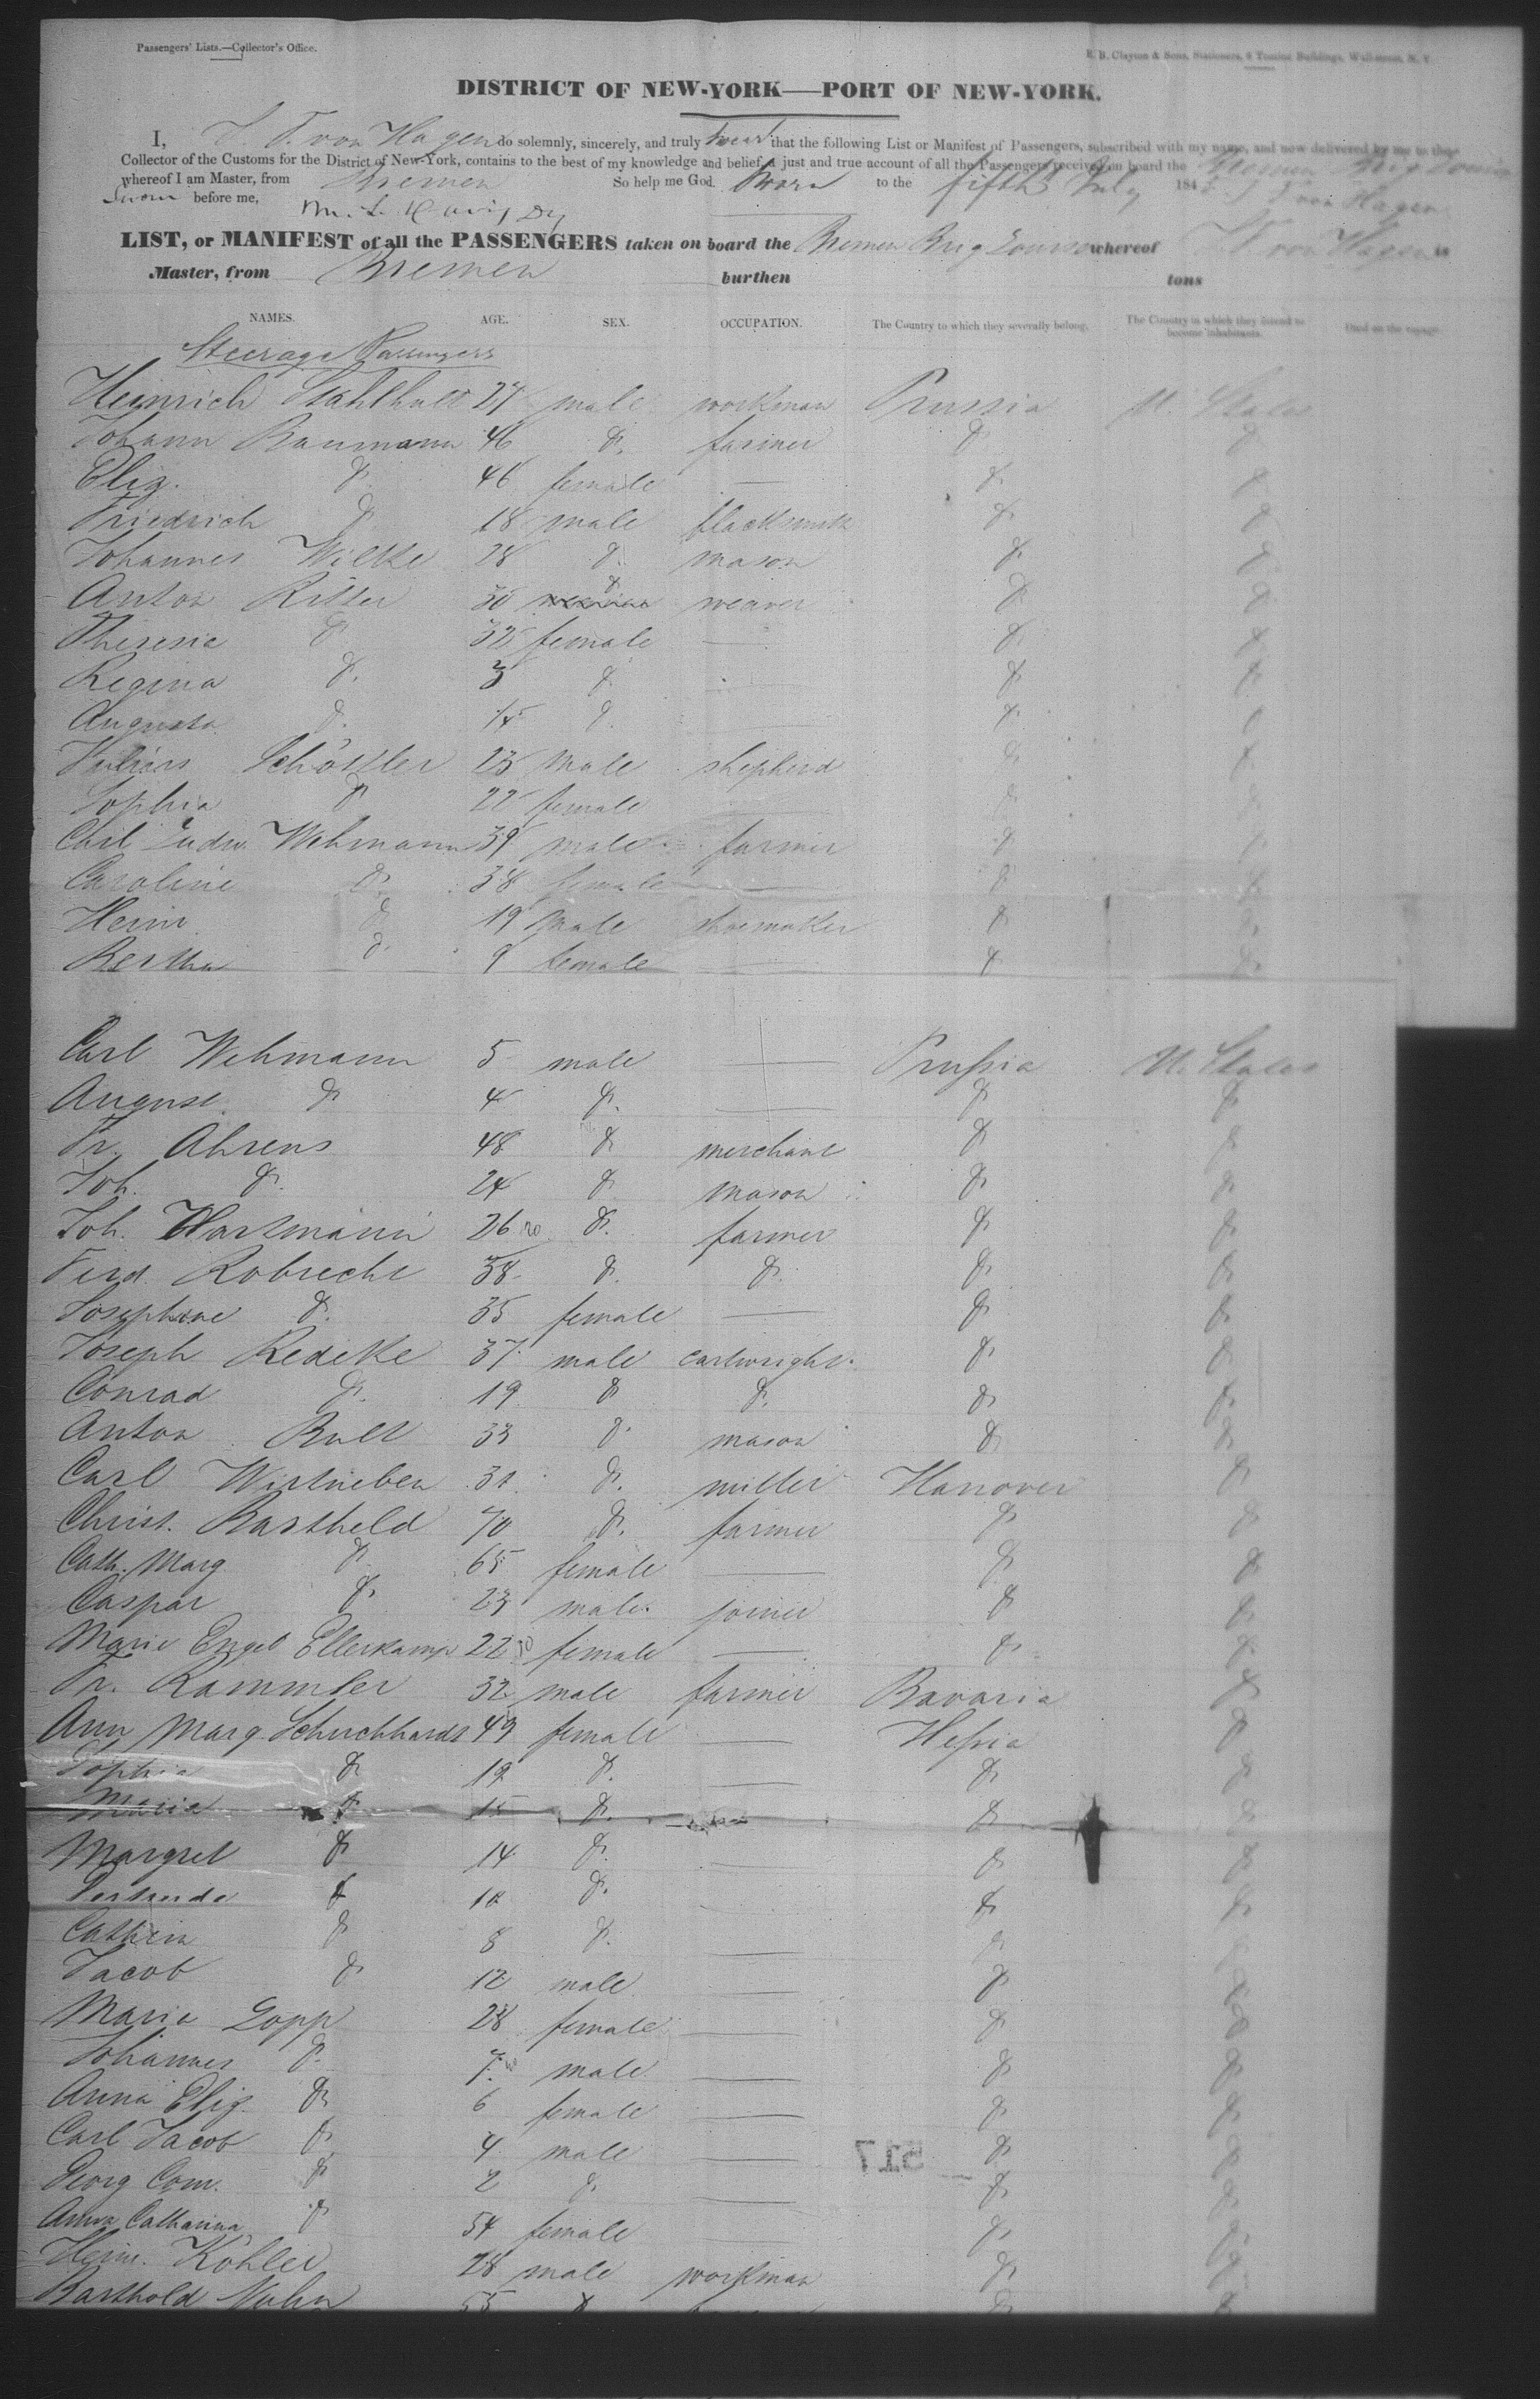 Passengers' Lists.—Collector's Office.
E. B. Clayton & Sons, Stationers, 9 Tontine Buildings, Wall-street, N. Y.
DISTRICT OF NEW-YORK——PORT OF NEW-YORK.
I, von Hagen do solemnly, sincerely, and truly swear that the following List or Manifest of Passengers, subscribed with my name, and now delivered by me to the
Collector of the Customs for the District of New-York, contains to the best of my knowledge and belief, a just and true account of all the Passengers received on board the Bremen Brig Louise
whereof I am Master, from Bremen So help me God. Sworn to the fifth July 184 von Hagen
Sworn before me,
LIST, or MANIFEST of all the PASSENGERS taken on board the Bremen Brig Louise whereof von Hagen is
Master, from Bremen burthen tons
NAMES. AGE. SEX. OCCUPATION. The Country to which they severally belong. The Country in which they intend to become inhabitants. Died on the voyage.
Steerage Passengers
Heinrich Stahlhut 27 male workman Prussia U. States
Johann Baumann 46 d. farmer d d
Eliz. d 46 female — d d
Friedrich d 18 male blacksmith d d
Johannes Wilke 28 d. mason d d
Anton Ritter 30 d weaver d d
Theresia d 32 female — d d
Regina d. 3 d d d
Augusta d. d. d d
Julius Schössler 25 male shepherd d d
Sophia d 22 female d d
Carl Ludw. Wehmann 39 male farmer d d
Caroline d. 38 female — d d
Heinr. d 19 male shoemaker d d
Bertha d. 9 female — d d
Carl Wehmann 5 male — Prussia U. States
August d 4 d. — d d
Fr. Ahrens 48 d merchant d d
Joh. d. 24 d mason d d
Joh. Hartmann 26 d. farmer d d
Ferd. Robrecht 38 d. d. d d
Josephine d. 35 female — d d
Joseph Redeke 37 male cartwright d d
Conrad d. 19 d d. d d
Anton Bull 33 d. mason d d
Carl 31 d. miller Hanover d
Christ. Bartheld 70 d. farmer d d
Cath. Marg. d 65 female — d d
Caspar d. 23 male joiner d d
Marie Engel Ellerkamp 22 female — d d
Fr. Rammler 32 male farmer Bavaria d
Ann Marg. Schuchhardt 49 female — Hessia d
Sophia d 19 d. — d d
Maria d 15 d. — d d
Margret d 14 d. — d d
Gertrude d 10 d. — d d
Cathrin d 8 d. — d d
Jacob d 12 male — d d
Marie Lopp 28 female — d d
Johannes d. 7 male — d d
Anna Eliz. d 6 female — d d
Carl Jacob d 4 male — d d
Georg Conr. d 2 d. — d d
Anna Catharina d 54 female d d
Heinr. Köhler 28 male workman d d
Barthold Nuhn 55 d d d
517